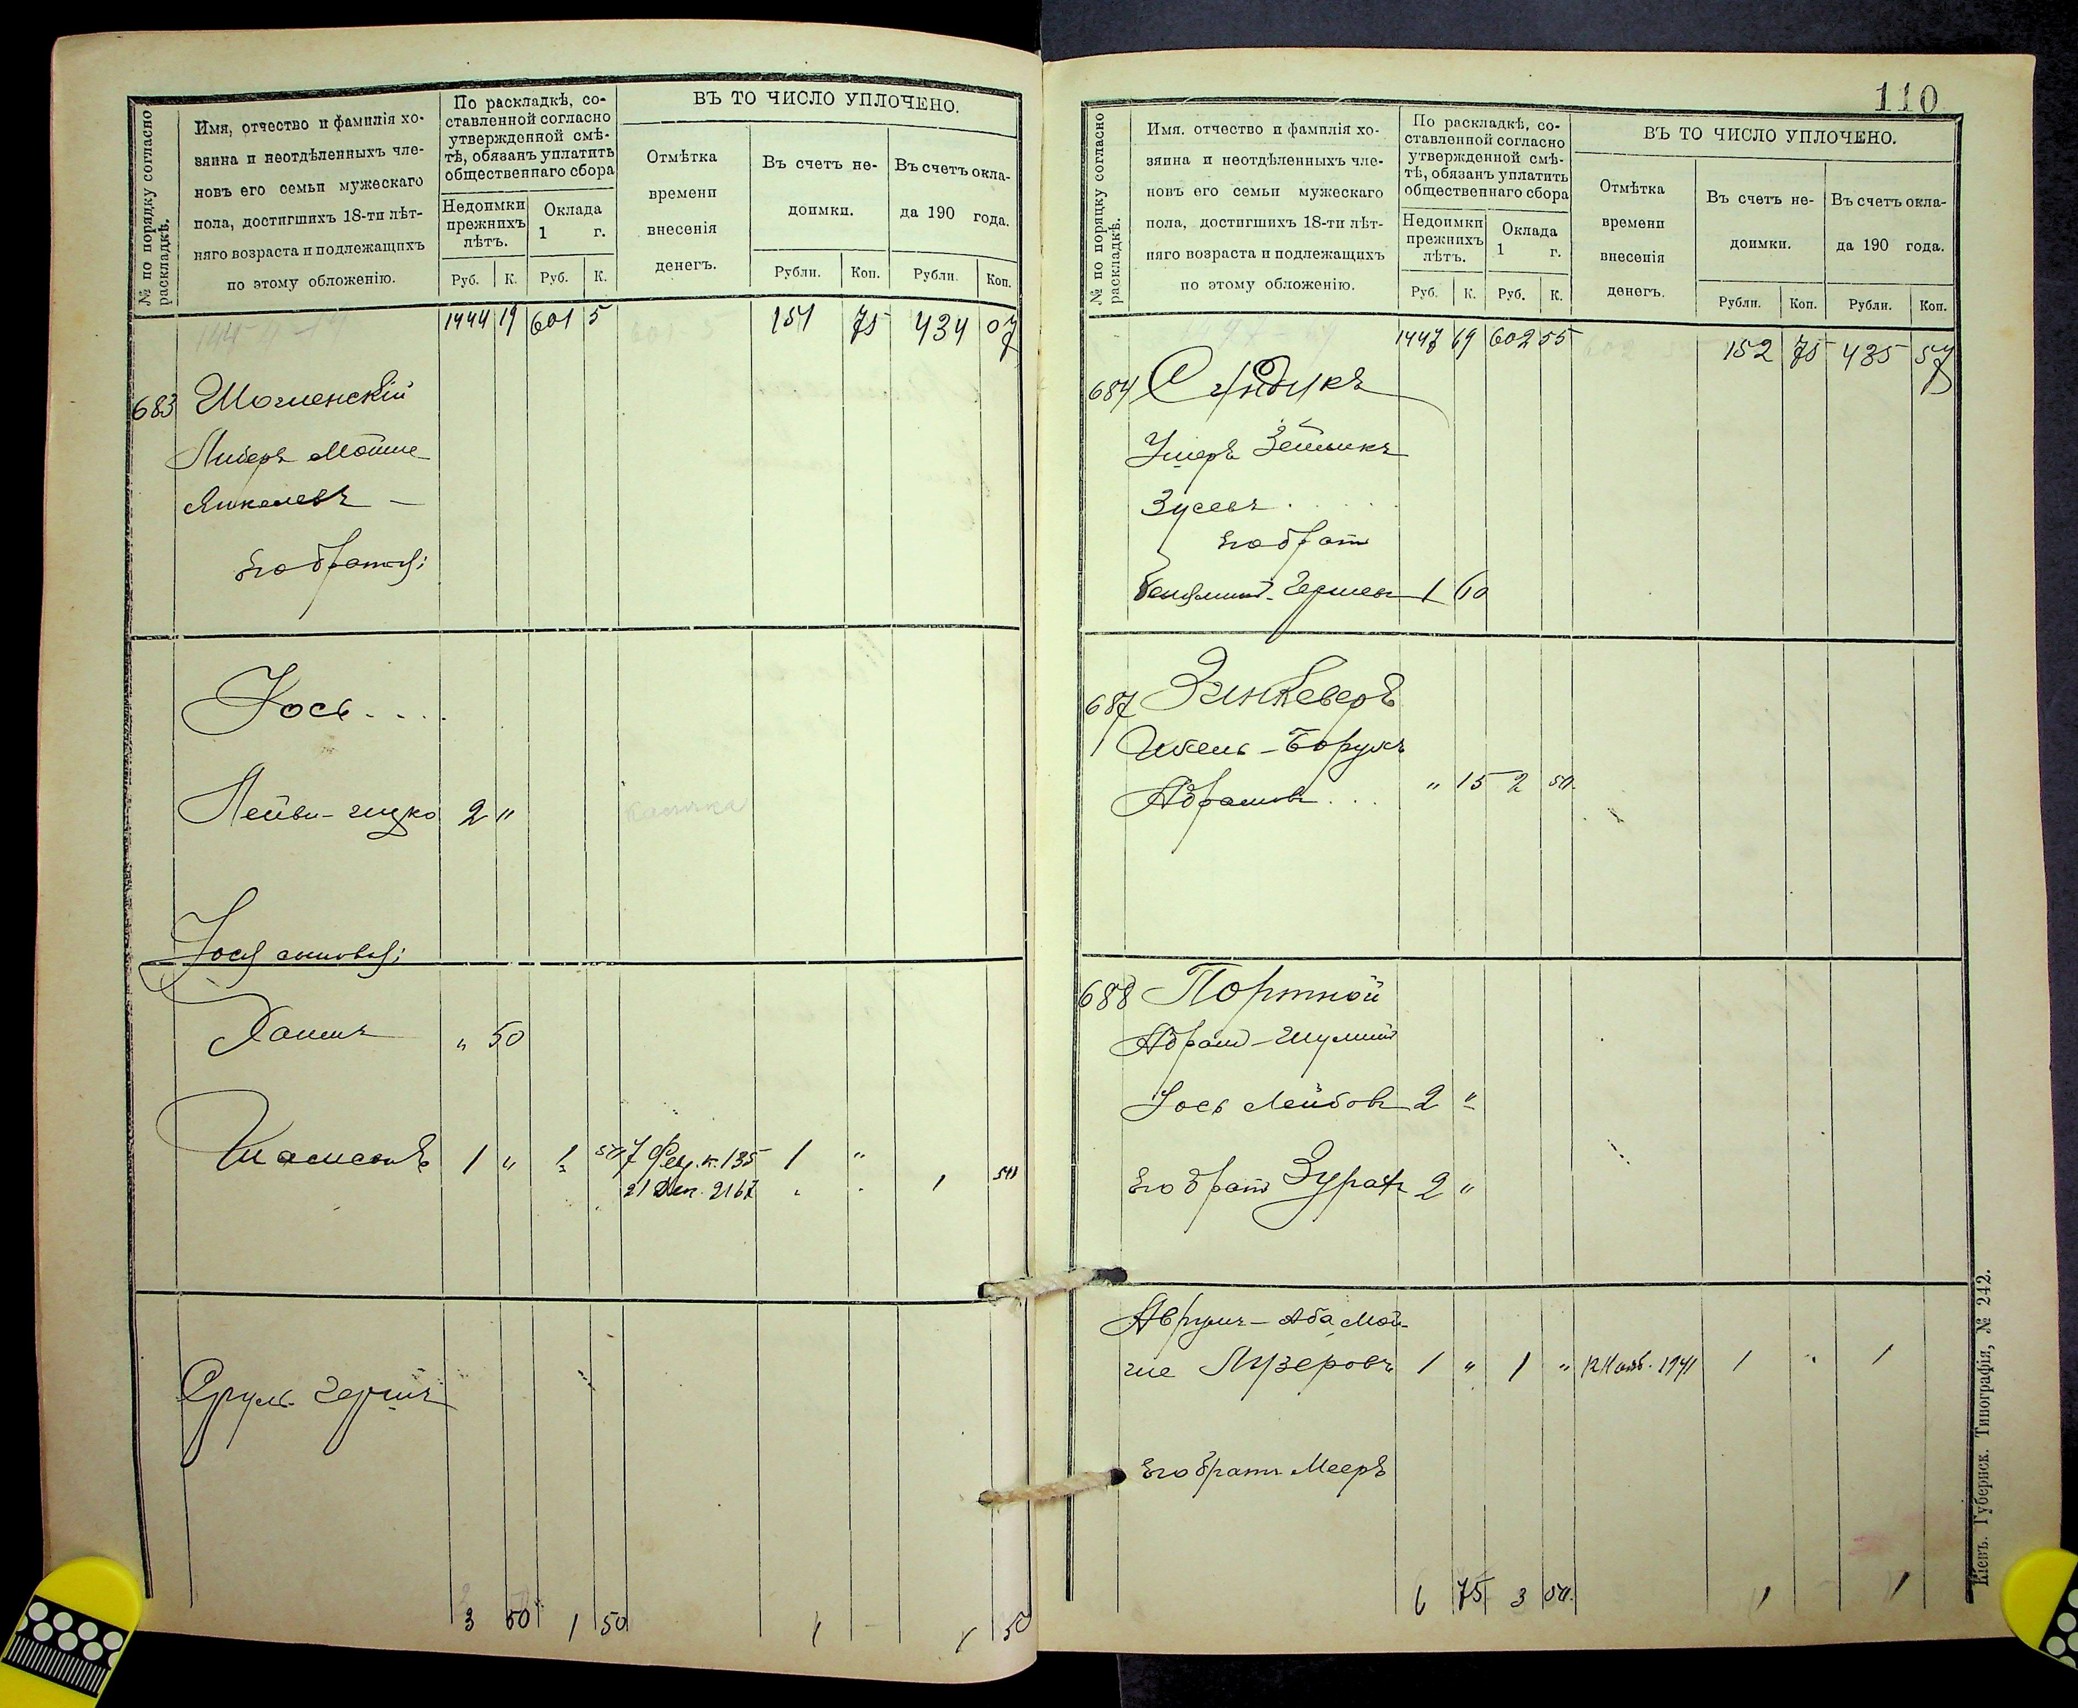 № по порядку согласно раскладкѣ.
Имя, отчество и фамилія хо-
зяина и неотдѣленныхъ чле-
новъ его семьи мужескаго
пола, достигшихъ 18-ти лѣт-
няго возраста и подлежащихъ
по этому обложенію.
По раскладкѣ, со-
ставленной согласно
утвержденной смѣ-
тѣ, обязанъ уплатить
общественнаго сбора
Недоимки
прежнихъ
лѣтъ.
Оклада
1 г.
Руб. К. Руб. К.
ВЪ ТО ЧИСЛО УПЛОЧЕНО.
Отмѣтка
времени
внесенія
денегъ.
Въ счетъ не-
доимки.
Въ счетъ окла-
да 190 года.
Рубли. Коп. Рубли. Коп.
1444 19 601 5 151 75 434 07
683
Мойше
Янкелевъ
Его братья:
Іось
Лейви-
2 "
Іося сыновья:
Хаимъ " 50
1 " 1 50 7 Фев. к. 135 1 "
21 Дек. 2167 " " 1 50
Сруль Гершъ
3 50 1 50 1 - 1 50
110
№ по порядку согласно раскладкѣ.
Имя. отчество и фамилія хо-
зяина и неотдѣленныхъ чле-
новъ его семьи мужескаго
пола, достигшихъ 18-ти лѣт-
няго возраста и подлежащихъ
по этому обложенію.
По раскладкѣ, со-
ставленной согласно
утвержденной смѣ-
тѣ, обязанъ уплатить
общественнаго сбора
Недоимки
прежнихъ
лѣтъ.
Оклада
1 г.
Руб. К. Руб. К.
ВЪ ТО ЧИСЛО УПЛОЧЕНО.
Отмѣтка
времени
внесенія
денегъ.
Въ счетъ не-
доимки.
Въ счетъ окла-
да 190 года.
Рубли. Коп. Рубли. Коп.
1447 69 602 55 152 75 435 57
684 Синдикъ
Ушеръ
Зусевъ
Его братъ
1 60
687 Зинкеверъ
Борухъ
Абрамовъ " 15 2 50
688 Портной
Абрамъ-Шулимъ
Іось Лейбовъ 2 "
Его братъ 2 "
Аврумъ-Аба Мой-
ше Лузеровъ 1 " 1 " 12 Нояб. 1941 1 " 1
Его братъ Мееръ
6 75 3 50 1 - 1
Кіевъ. Губернск. Типографія, № 242.